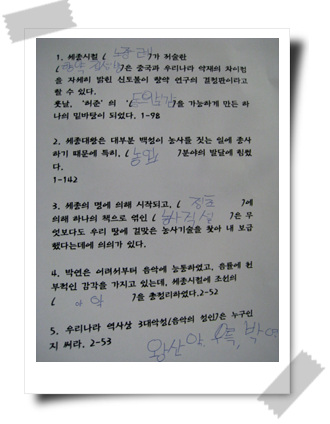 1. 세종시절 ( 노중례 )가 저술한
( )은 중국과 우리나라 약재의 차이점
을 자세히 밝힌 신토불이 향약 연구의 결정판이라고
할 수 있다.
훗날, '허준' 의 '( 동의보감 )을 가능하게 만든 하
나의 밑바탕이 되었다. 1-98
2. 세종대왕은 대부분 백성이 농사를 짓는 일에 종사
하기 때문에 특히, ( 농업 )분야의 발달에 힘썼
다.
1-142
3. 세종의 명에 의해 시작되고, ( 정초 )에
의해 하나의 책으로 엮인 ( 농사직설 )은 무
엇보다도 우리 땅에 걸맞은 농사기술을 찾아 내 보급
했다는데에 의의가 있다.
4. 박연은 어려서부터 음악에 능통하였고, 음률에 천
부적인 감각을 가지고 있는데, 세종시절에 조선의
( 아악 )을 총정리하였다.2-52
5. 우리나라 역사상 3대악성(음악의 성인)은 누구인
지 써라. 2-53
왕산악, 우륵, 박연